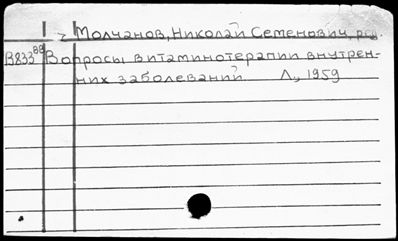 Молчанов, Николай Семенович, ред.
В833 88 Вопросы витаминотерапии внутрен-
них заболеваний. Л., 1959